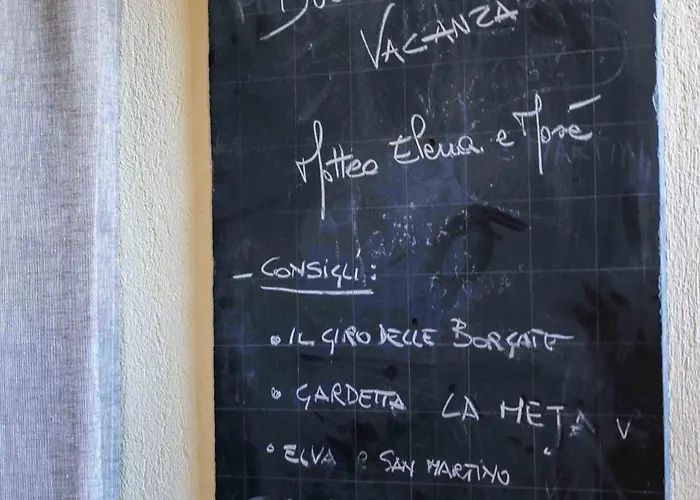 VACANZA
Matteo Elena e Mosè
- CONSIGLI:
• IL GIRO DELLE BORGATE
• GARDETTA LA META V
• ELVA e SAN MARTINO